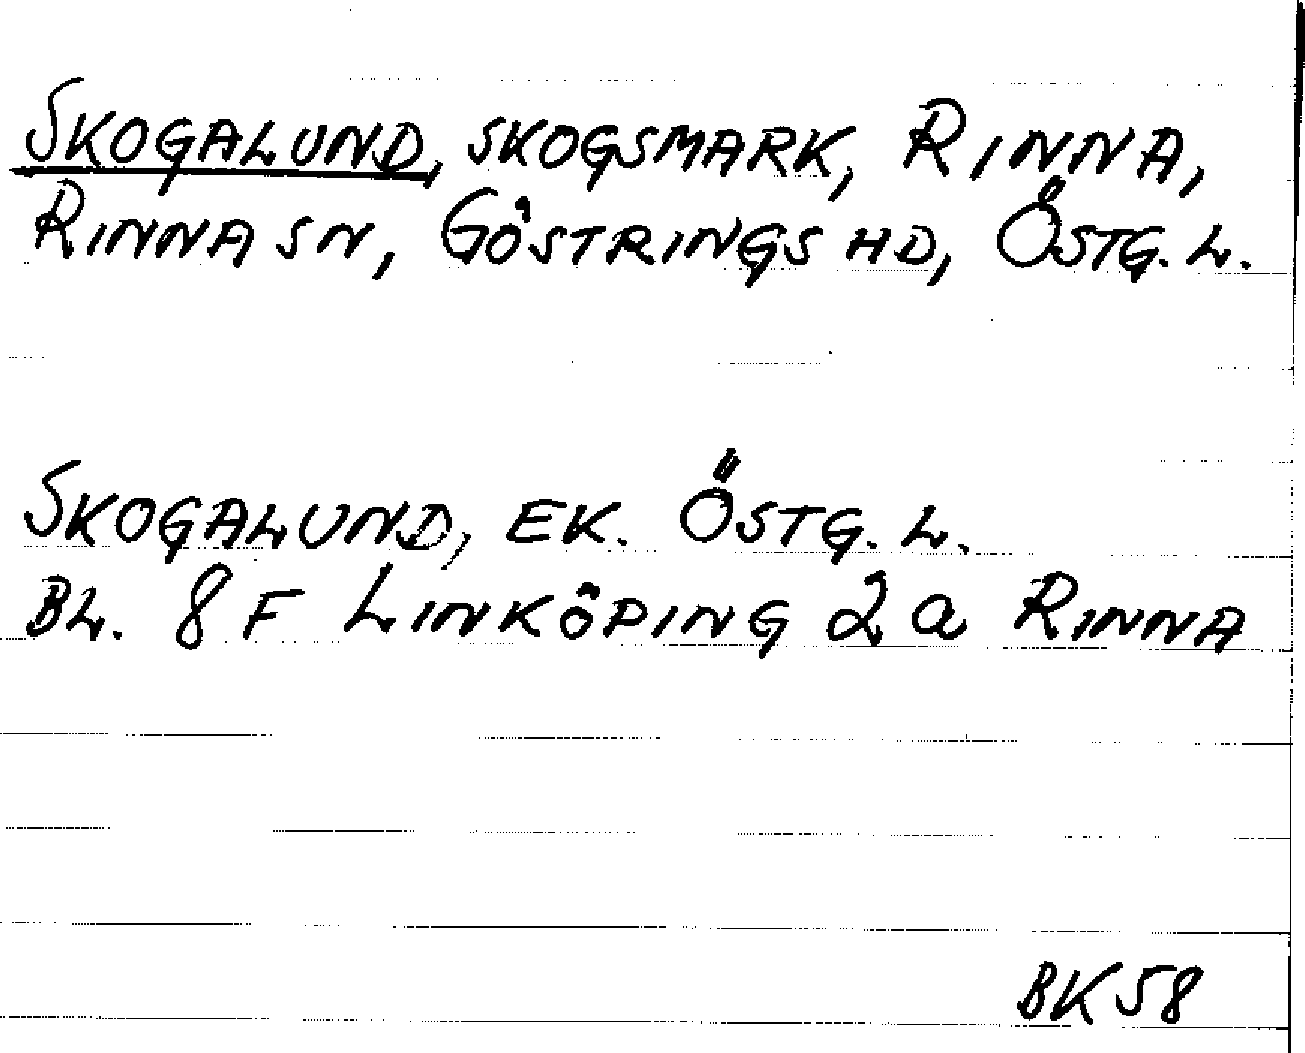 SKOGALUND, SKOGSMARK, RINNA,
RINNA SN, GÖSTRINGS HD, ÖSTG. L.
SKOGALUND, EK. ÖSTG. L.
BL. 8 F LINKÖPING 2 a RINNA
BK 58